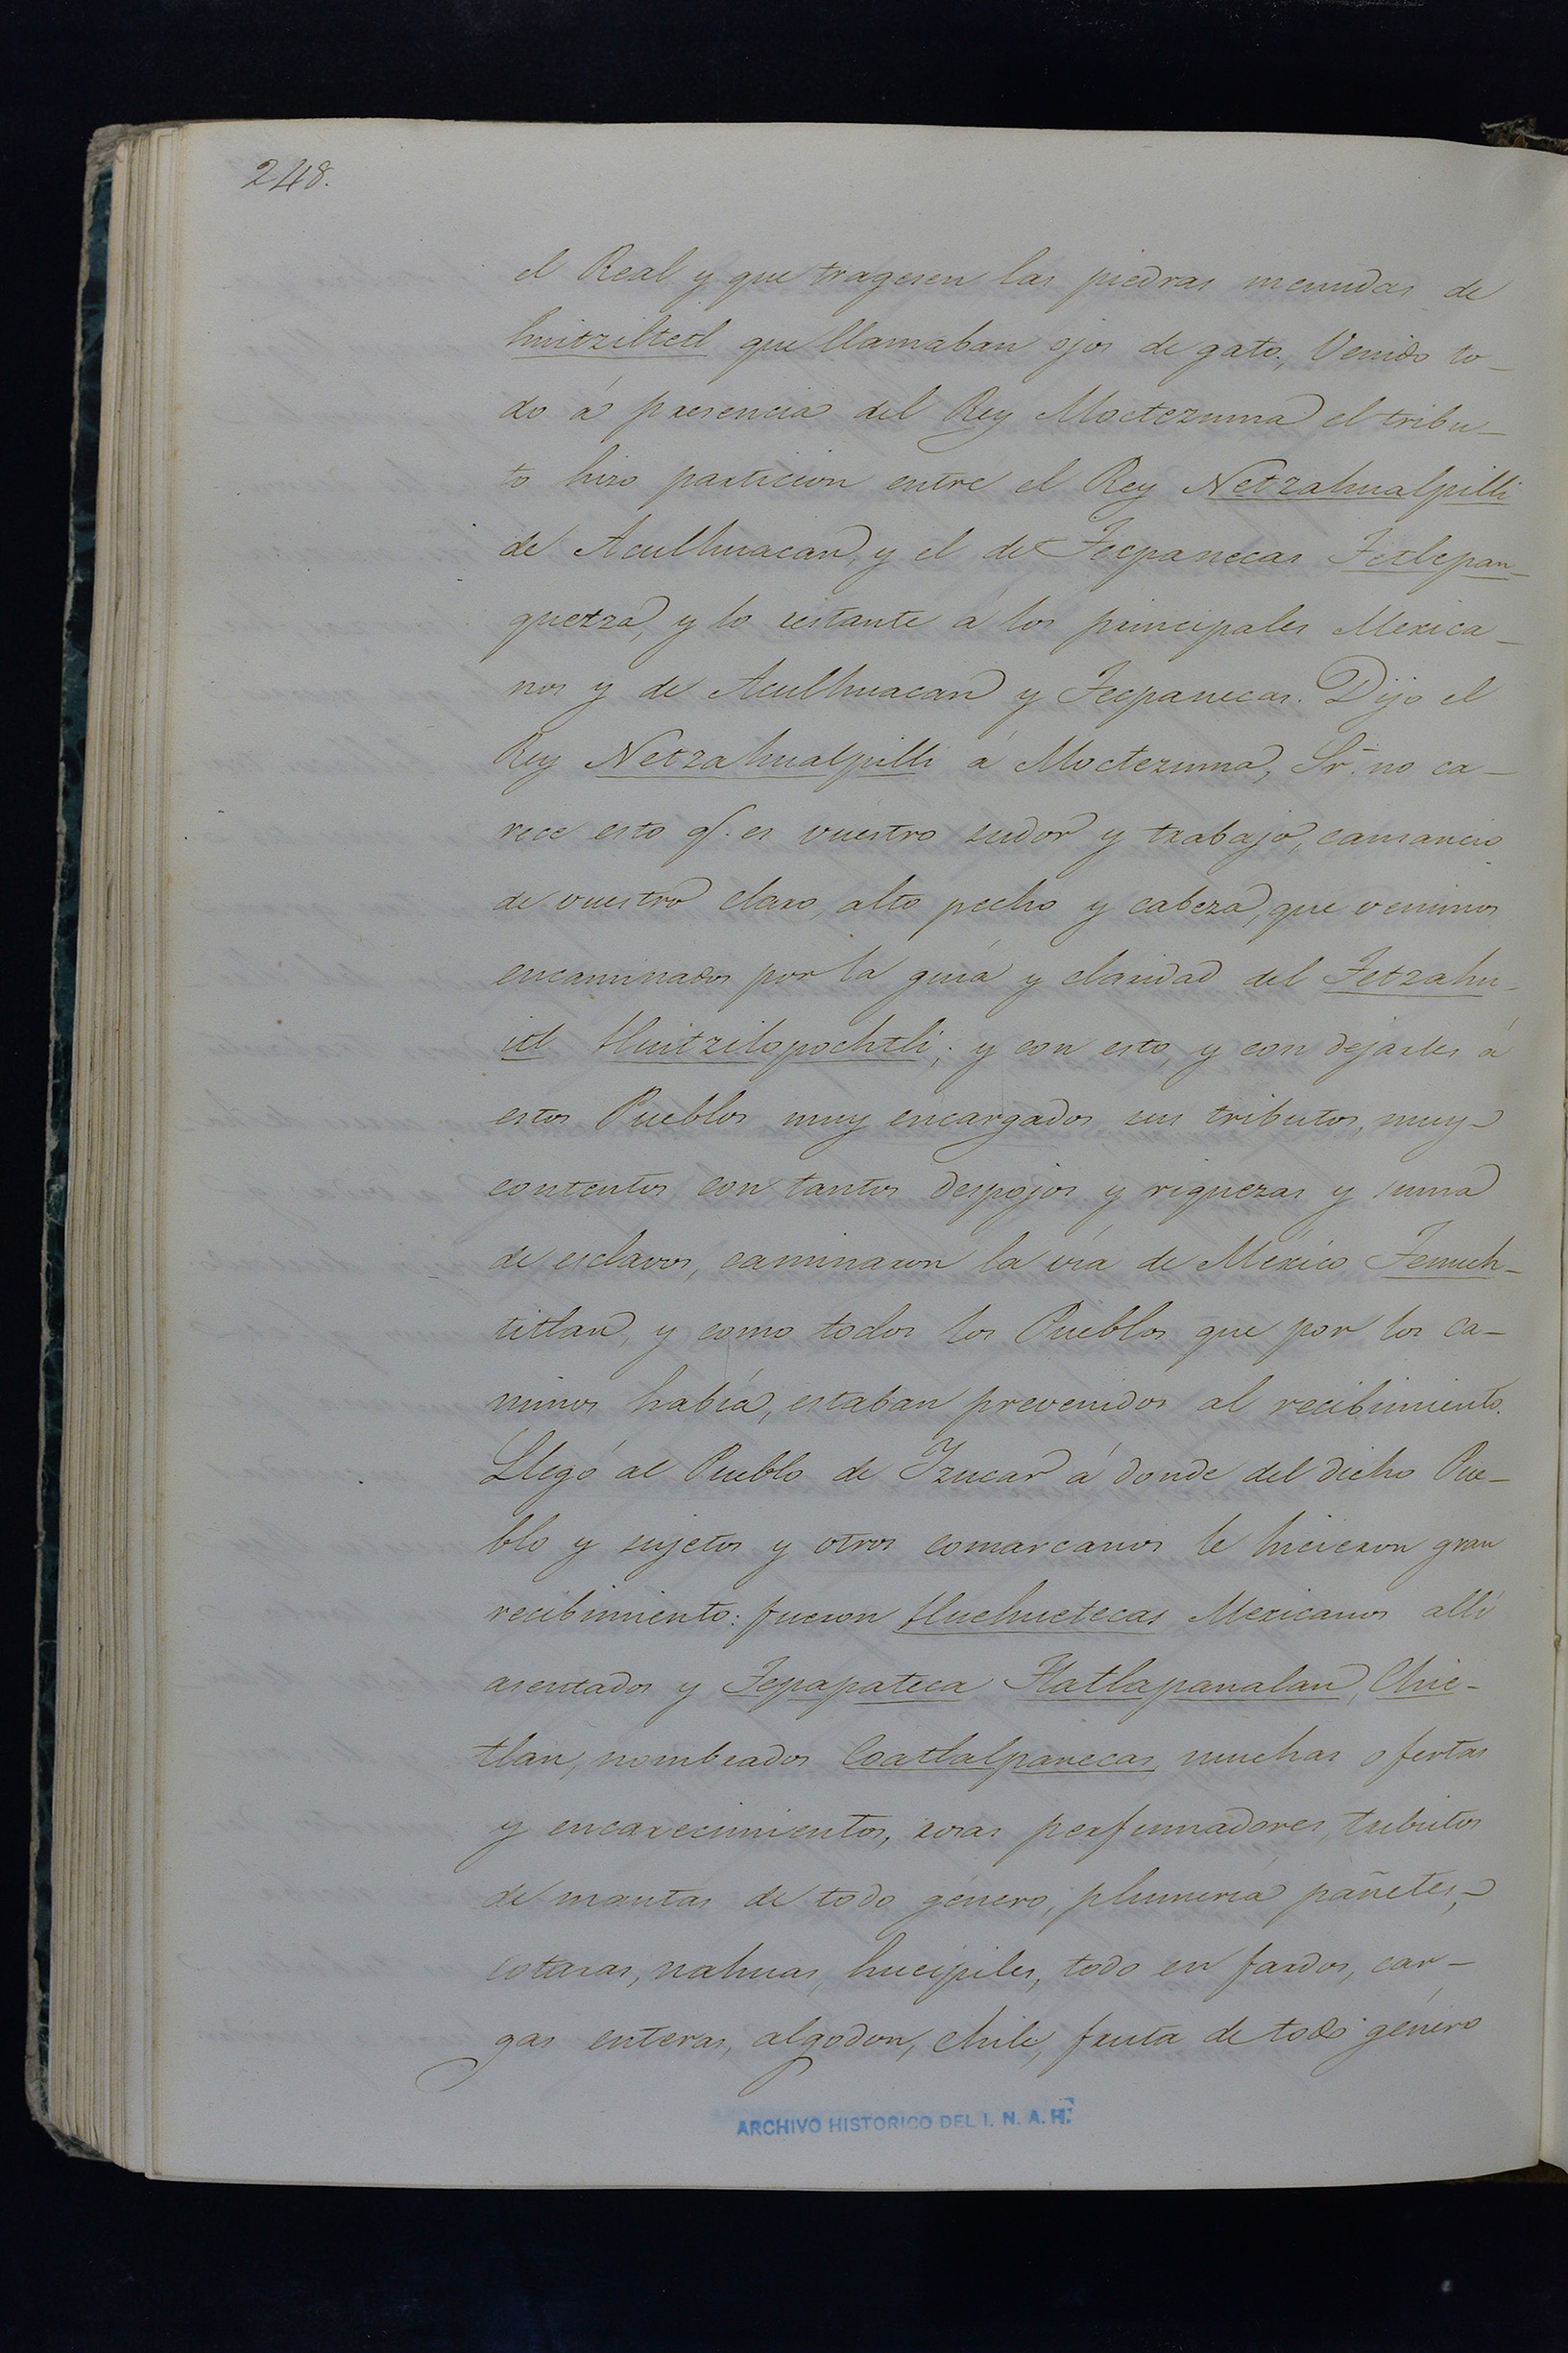 248.
el Real y que tragesen las piedras menudas de
huitziltetl que llamaban ojos de gato, Venido to-
do á presencia del Rey Moctezuma el tribu-
to hizo particion entre el Rey Netzahualpilli
de Aculhuacan, y el de Tecpanecas Tetlepan-
quetza, y lo restante á los principales Mexica-
nos y de Aculhuacan y Tecpanecas. Dijo el
Rey Netzahualpilli á Moctezuma, Sr. no ca-
rece esto q. es vuestro sudor y trabajo, cansancio
de vuestro claro, alto pecho y cabeza, que venimos
encaminados por la guía y claridad del Tetzahu-
itl Huitzilopochtli; y con esto, y con dejarles á
estos Pueblos muy encargados sus tributos, muy
contentos con tantos despojos y riquezas y suma
de esclavos, caminaron la vía de México Tenuch-
titlan, y como todos los Pueblos que por los ca-
minos había, estaban prevenidos al recibimiento.
Llegó al Pueblo de Izucar á donde del dicho Pue-
blo y sujetos y otros comarcanos le hicieron gran
recibimiento: fueron Huehuetecas Mexicanos allí
asentados y Tepapateca Tlatlapanalan, Chie-
tlan, nombrados Coatlalpanecas, muchas ofertas
y encarecimientos, rosas perfumadores, tributos
de mantas de todo género, plumería pañetes,
cotaras, nahuas, hueipiles, todo en fardos, car-
gas enteras, algodon, chile, fruta de todo género
ARCHIVO HISTORICO DEL I. N. A. H.